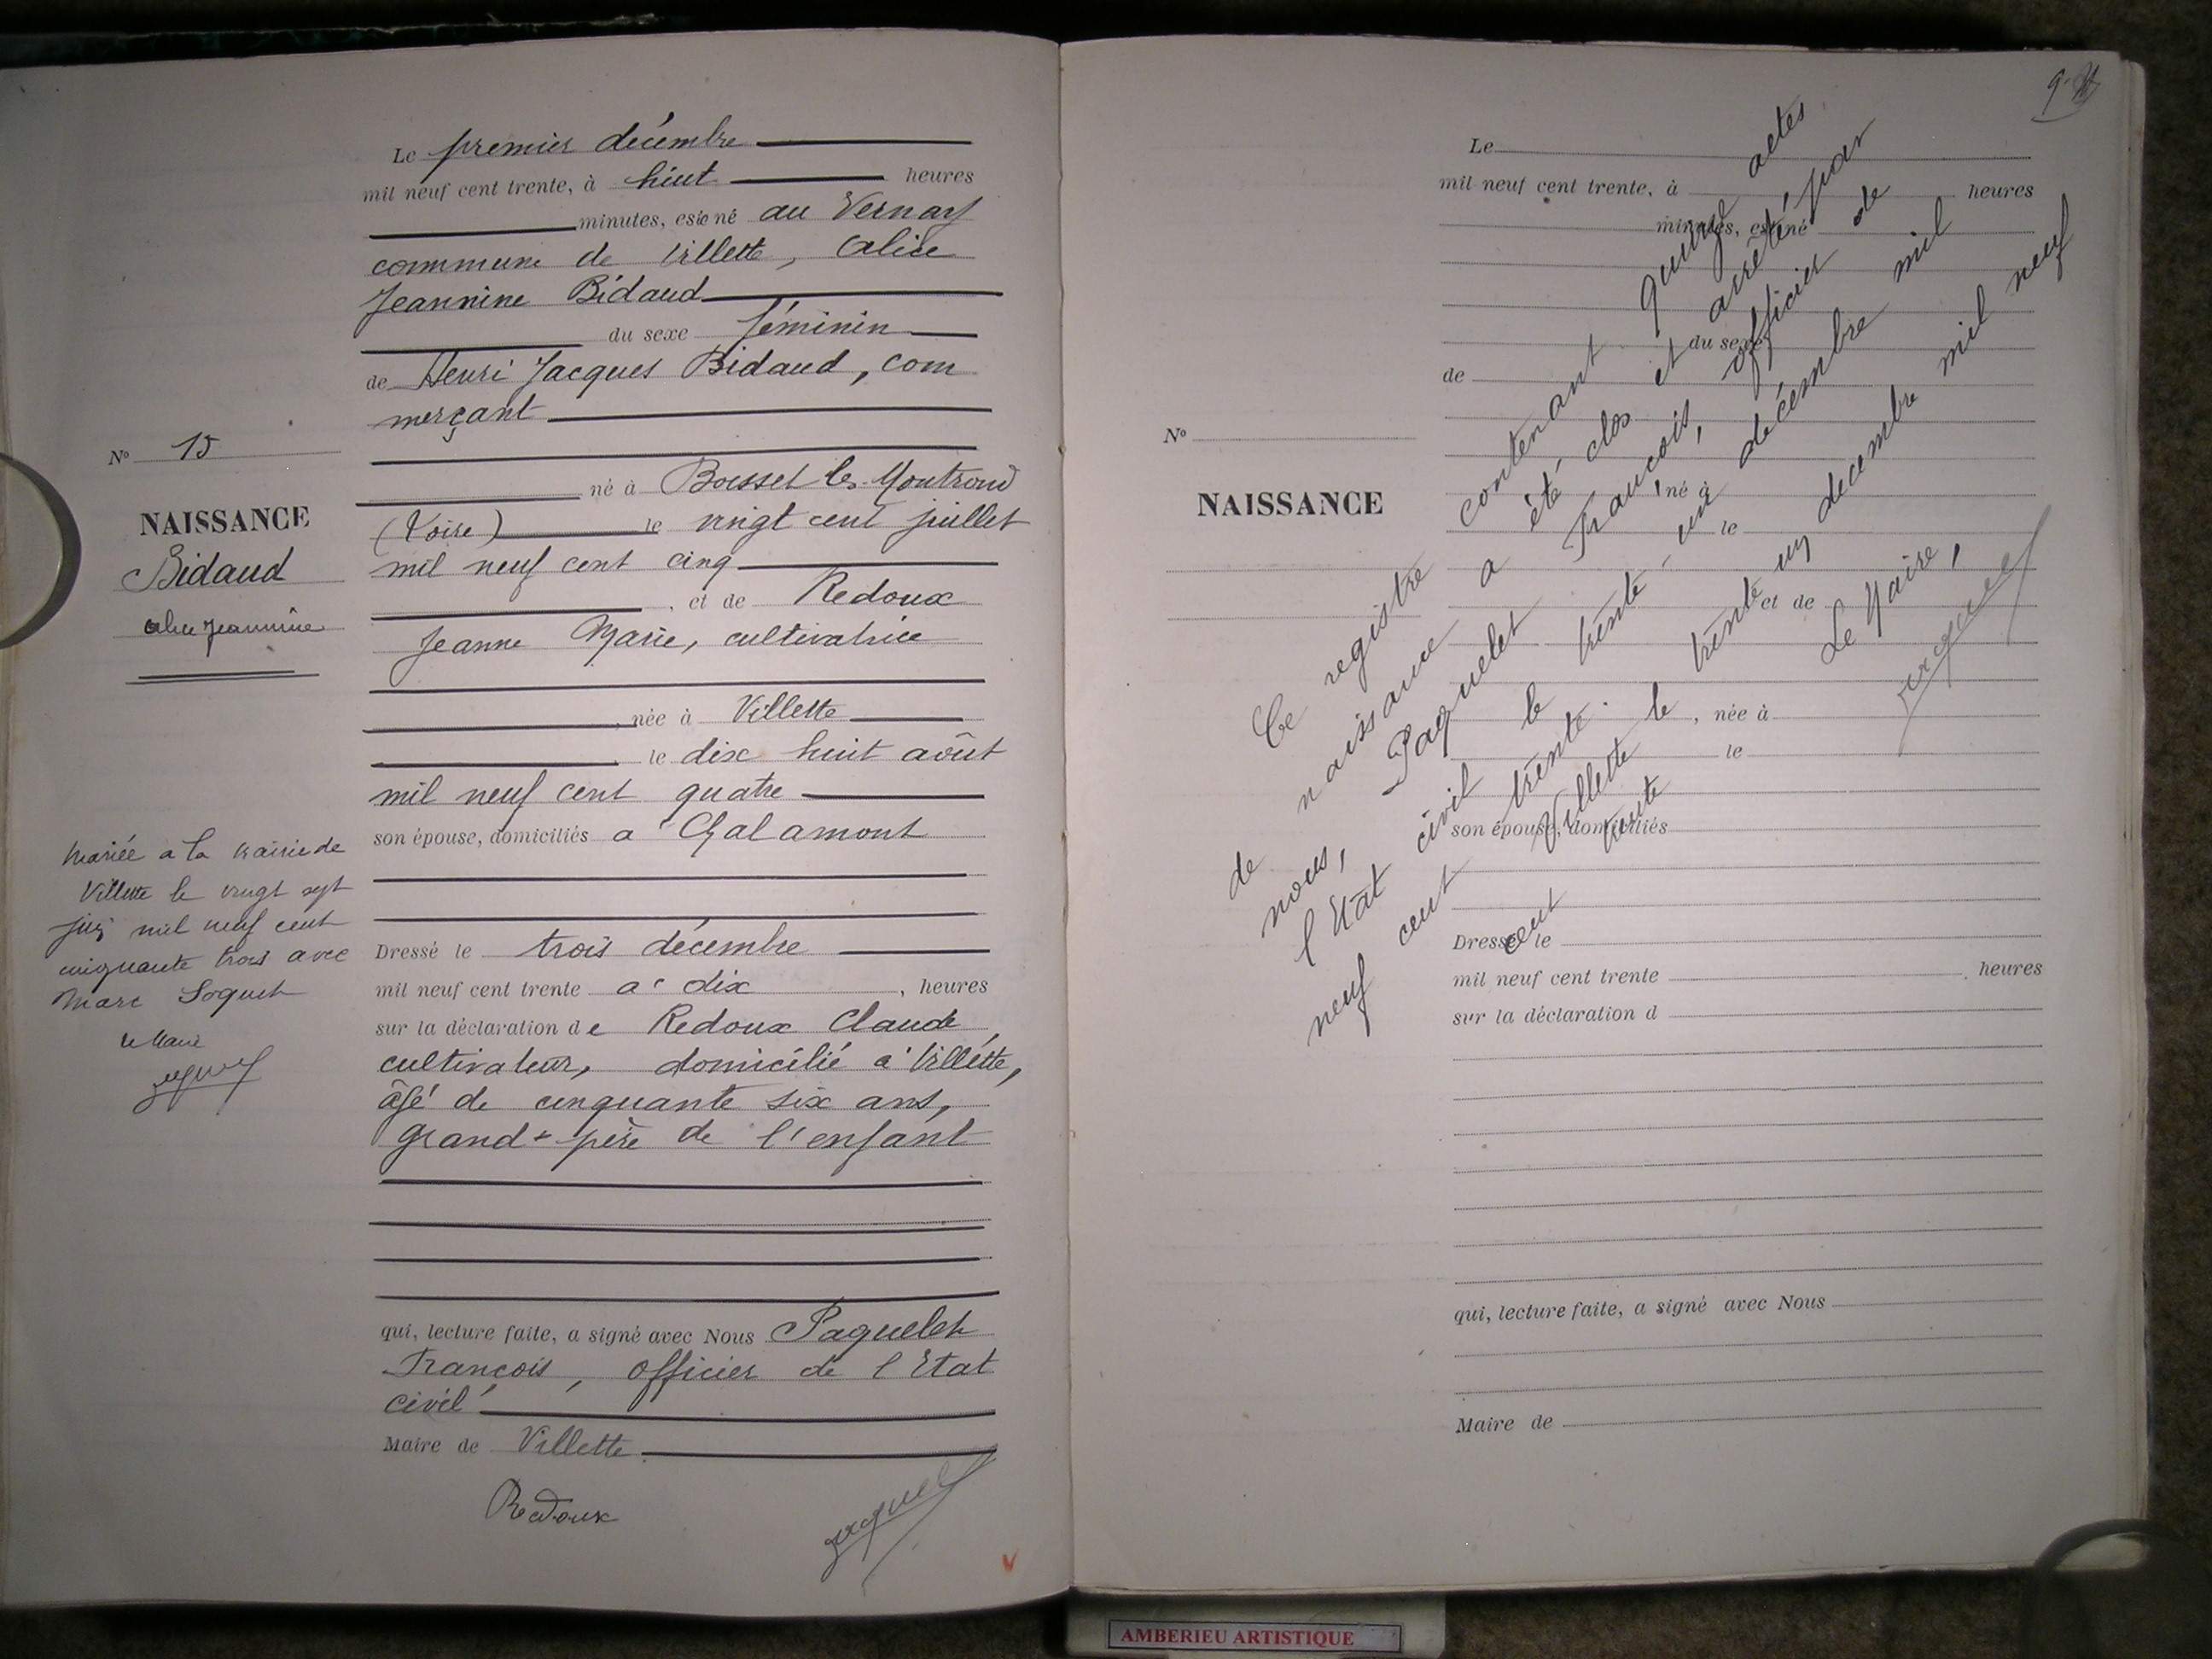 Le premier décembre
mil neuf cent trente, à huit heures
minutes, est né au Vernay
commune de Villette, Alice
Jeannine Bidaud
du sexe féminin
de Henri Jacques Bidaud, com
merçant
né à Boisset les Montrond
(Loire) le vingt cent juillet
mil neuf cent cinq
, et de Redoux
Jeanne Marie, cultivatrice
, née à Villette
le dix huit août
mil neuf cent quatre
son épouse, domiciliés à Chalamont
Dressé le trois décembre
mil neuf cent trente à dix, heures
sur la déclaration de Redoux Claude,
cultivateur, domicilié à Villette,
âgé de cinquante six ans,
grand-père de l'enfant
qui, lecture faite, a signé avec Nous Paquelet
François, officier de l'Etat
civil
Maire de Villette
Redoux
Paquelet
N° 15
NAISSANCE
Bidaud
Alice Jeannine
Mariée à la mairie de
Villette le vingt sept
juin mil neuf cent
cinquante trois avec
Marc
Le Maire
9
Le
mil neuf cent trente, à heures
minutes, est né
du sexe
de
né à
le
, et de
, née à
le
son épouse, domiciliés
Dressé le
mil neuf cent trente , heures
sur la déclaration d
qui, lecture faite, a signé avec Nous
Maire de
N°
NAISSANCE
Ce registre contenant quinze actes
de naissance a été clos et arrêté par
nous, Paquelet François, officier de
l'Etat civil le trente-un décembre mil
neuf cent trente.
Villette le trente un décembre mil neuf
cent trente
Le Maire,
Paquelet
AMBERIEU ARTISTIQUE